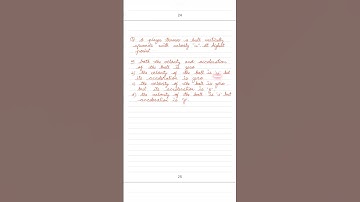 24
Q) A player throws a ball vertically
upwards with velocity "u". At highest
point
a) both the velocity and acceleration
of the ball is zero
b) the velocity of the ball is but
its acceleration is zero
c) the velocity of the ball is zero
but its acceleration is 'g'
d) the velocity of the ball is u but
acceleration is 'g'.
25